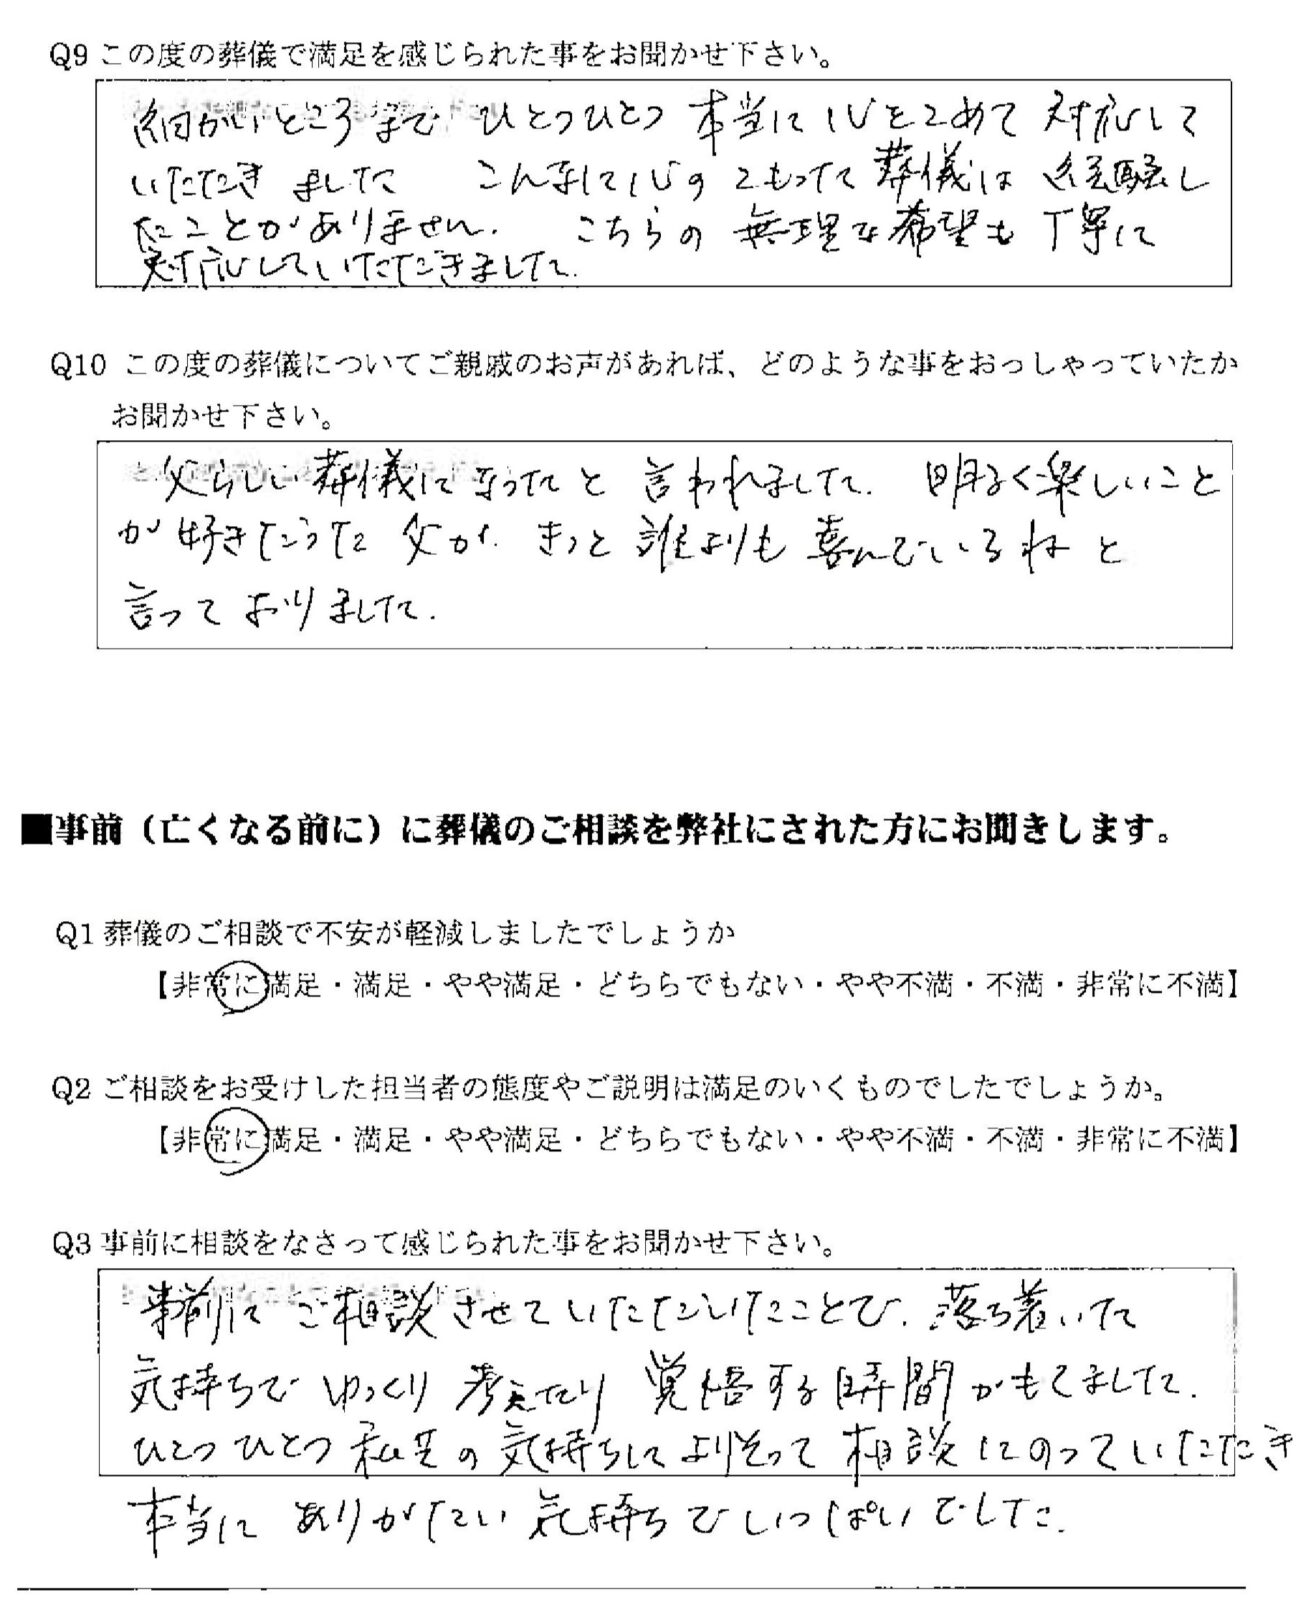 Q9 この度の葬儀で満足を感じられた事をお聞かせ下さい。
細かいところまで ひとつひとつ 本当に心をこめて 対応して
いただき ました こんなに心の こもった 葬儀は 経験し
たことがありません. こちらの 無理な希望も 丁寧に
対応していただきました.
Q10 この度の葬儀についてご親戚のお声があれば、どのような事をおっしゃっていたか
お聞かせ下さい。
父らしい葬儀になったと 言われました. 明るく楽しいこと
が 好きだった 父が. きっと 誰よりも 喜んでいるね と
言って おりました.
■事前（亡くなる前に）に葬儀のご相談を弊社にされた方にお聞きします。
Q1 葬儀のご相談で不安が軽減しましたでしょうか
【非常に満足・満足・やや満足・どちらでもない・やや不満・不満・非常に不満】
Q2 ご相談をお受けした担当者の態度やご説明は満足のいくものでしたでしょうか。
【非常に満足・満足・やや満足・どちらでもない・やや不満・不満・非常に不満】
Q3 事前に相談をなさって感じられた事をお聞かせ下さい。
事前に ご相談させていただいたことで. 落ち着いた
気持ちで ゆっくり 考えたり 覚悟する時間がもてました.
ひとつひとつ 私共の 気持ちに よりそって 相談 にのっていただき
本当に ありがたい 気持ちで いっぱいでした.